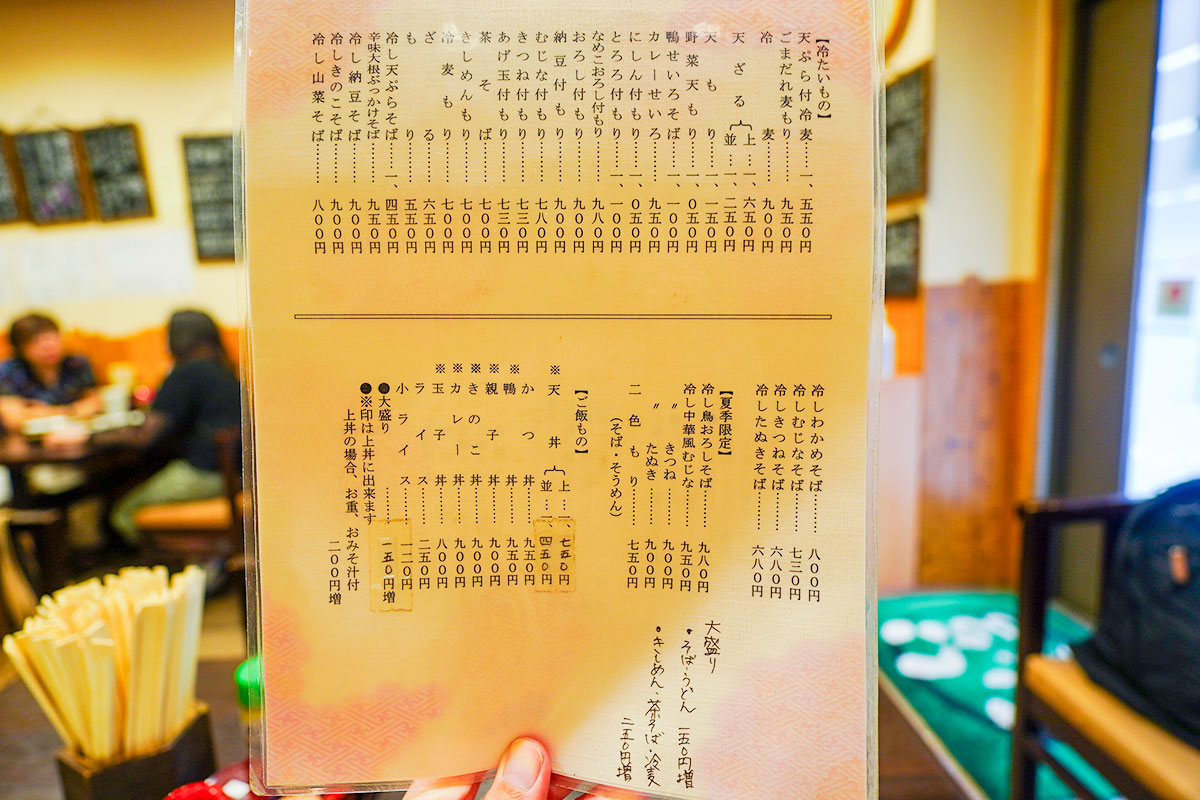 【冷たいもの】
天ぷら付冷麦……一、五五〇円
ごまだれ麦もり……九五〇円
冷麦……九〇〇円
天ざる 上…一、六五〇円
並…一、二五〇円
天もり……一、一五〇円
野菜天もり……一、〇五〇円
鴨せいろそば……一、一〇〇円
カレーせいろ……九五〇円
にしん付もり……一、〇五〇円
とろろ付もり……一、一〇〇円
なめこおろし付もり……九八〇円
おろし付もり……九〇〇円
納豆付もり……九〇〇円
むじな付もり……七八〇円
きつね付もり……七三〇円
あげ玉付もり……七三〇円
茶そば……七〇〇円
きしめんもり……七〇〇円
冷麦もり……七〇〇円
ざる……六五〇円
もり……五五〇円
冷し天ぷらそば……一、四五〇円
辛味大根ぶっかけそば……九五〇円
冷し納豆そば……九〇〇円
冷しきのこそば……九〇〇円
冷し山菜そば……八〇〇円
冷しわかめそば……八〇〇円
冷しむじなそば……七三〇円
冷しきつねそば……六八〇円
冷したぬきそば……六八〇円
【夏季限定】
冷し鳥おろしそば……九八〇円
冷し中華風むじな……九五〇円
〃 きつね……九〇〇円
〃 たぬき……九〇〇円
二色もり……七五〇円
(そば・そうめん)
【ご飯もの】
※天丼 上…一、七五〇円
並…一、四五〇円
かつ丼……九五〇円
※鴨丼……九五〇円
※親子丼……九〇〇円
※きのこ丼……九〇〇円
※カレー丼……九〇〇円
※玉子丼……八〇〇円
ライス……二五〇円
小ライス……一二〇円
●大盛り……一五〇円増
●※印は上丼に出来ます
上丼の場合、お重、おみそ汁付
二〇〇円増
大盛り
・そば・うどん 一五〇円増
・きしめん、茶そば・冷麦
二五〇円増